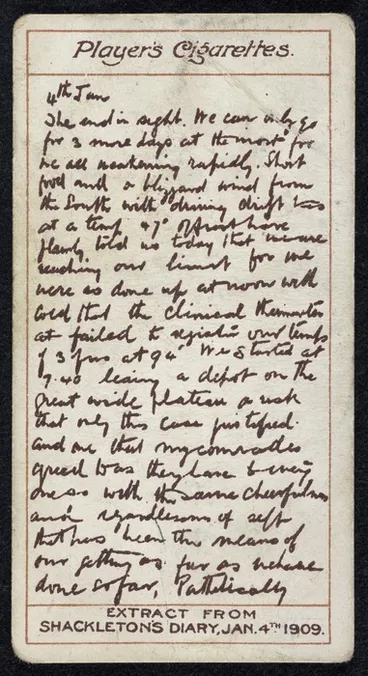 Player's Cigarettes.
4th Jan
The end in sight. We can only go
for 3 more days at the most for
we all weakening rapidly. Short
food and a blizzard wind from
the South with driving drift
at a temp 47° of frost have
plainly told us today that we are
reaching our limit for we
were so done up at noon with
cold that the clinical thermometer
at failed to register our temps
of 3 of us at 94° We started at
7.40 leaving a depot on the
great wide plateau a risk
that only this case justified
and one that my comrades
agreed to as they have to every
one so with the same cheerfulness
and regardlessness of self
that has been the means of
our getting as far as we have
done so far, Pathetically
EXTRACT FROM
SHACKLETON'S DIARY, JAN. 4TH 1909.